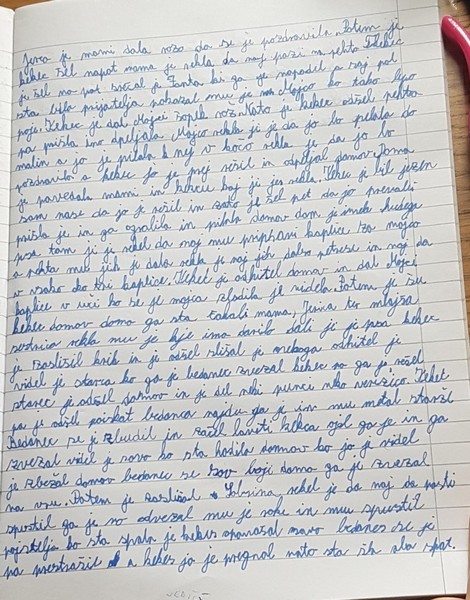 Jerca je mami dala rožo da se je pozdravila. Potem je
kekec šel napot mama je rekla da naj pazi na pehto. Kekec
je šel na pot srečal je Fanta ki ga je napadel a saj pol
sta bila prijatelja pokazal mu je Mojco ko tako lepo
poje. Kekec je dal Mojci šopik rož. Nato je kekec odšel pehta
pa prišla ino dpeljala Mojco rekla ji je da jo bo peljala do
malin a jo je pilala k nej v koco rekla je da jo bo
pozdravila a kekec jo je prej rešil in odpeljal domov. Doma
je povedala mami in kekcu kaj ji je rekla. Kekec je bil jezen
sam nase da jo je rešil in zato je šel pet da jo
prišla je in ga ograbila in pilala domov dom je imela hudega
psa tam ji je rekel da naj mu priprani kaplice za mojco
a pehta mu jih je dala rekla je naj jih dobro petrese in naj da
v vsako oko tri kaplice. Kekec je odhitel domov in dal Mojci
kaplice v uči ko se je mojca zbudila je videla. Potem je šu
kekec domov doma ga sta čakali mama, Jerica ter mlajša
sestrica rekla mu je kje ima darilo dali je je psa kekec
je zaslišal krik in je odšel slišal je nekoga odhitel je
videl je starca ko ga je bedanec zvezal kekec no ga je rešel
starec je odšel domov in je dal neki punci eno verižico. Kekec
pa je odšel poiskat bedanca najdu ga je in mu metal storže
Bedanec se je zbudil in začel loviti kekca ojel ga je in ga
zvezal videl je sovo ko sta hodila domov ko jo je videl
je zbežal domov bedanec se sov boji doma ga je zvezal
na vrv. Potem je zaslišal rekel je da naj da pasti
spustil ga je no odvezal mu je roke in mu spustil
pojstelji ko sta spala je kekec oponašal sovo bedanec se je
pa prestrašil a kekec jo je pregnal nato sta šla oba spat.